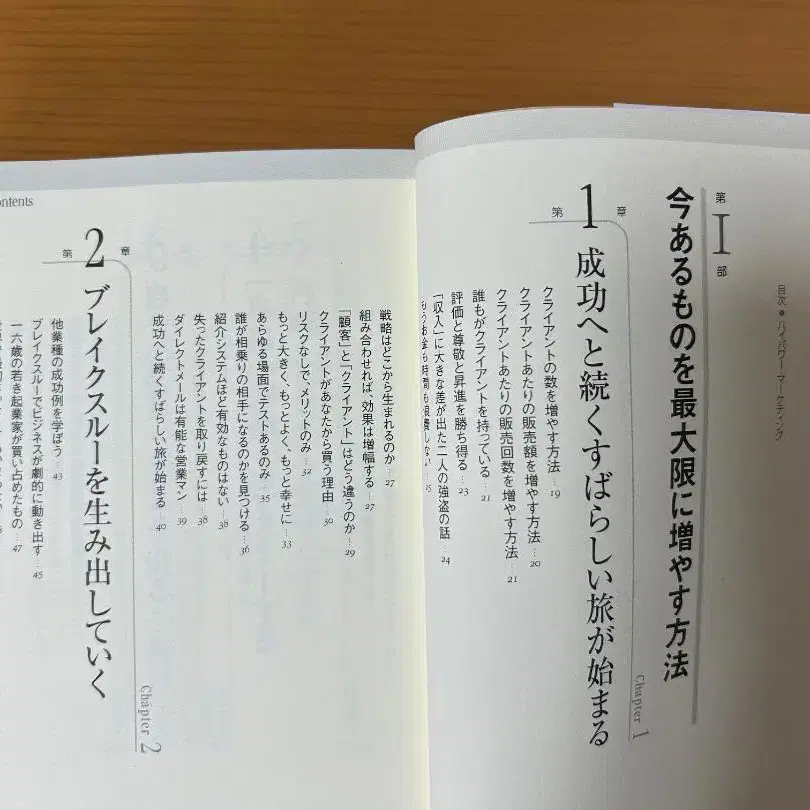 目次●ハイパワー・マーケティング
第Ⅰ部
今あるものを最大限に増やす方法
第1章 成功へと続くすばらしい旅が始まる
Chapter 1
クライアントの数を増やす方法…19
クライアントあたりの販売額を増やす方法…20
クライアントあたりの販売回数を増やす方法…21
誰もがクライアントを持っている…21
評価と尊敬と昇進を勝ち得る…23
「収入」に大きな差が出た二人の強盗の話…24
もうお金も時間も浪費しない…25
ontents
戦略はどこから生まれるのか…27
組み合わせれば、効果は増幅する…27
「顧客」と「クライアント」はどう違うのか…29
クライアントがあなたから買う理由…30
リスクなしで、メリットのみ…32
もっと大きく、もっとよく、もっと幸せに…33
あらゆる場面でテストあるのみ…35
誰が相乗りの相手になるのかを見つける…36
紹介システムほど有効なものはない…38
失ったクライアントを取り戻すには…38
ダイレクトメールは有能な営業マン…39
成功へと続くすばらしい旅が始まる…40
第2章 ブレイクスルーを生み出していく
Chapter 2
他業種の成功例を学ぼう…43
ブレイクスルーでビジネスが劇的に動き出す…45
一六歳の若き起業家が買い占めたもの…47